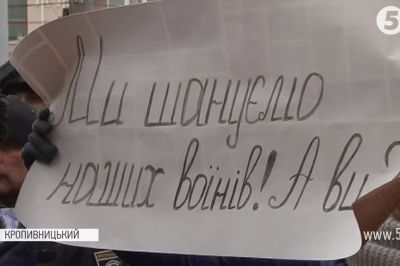 5
Ми шануємо
наших воїнів! А ви?
КРОПИВНИЦЬКИЙ
www.5